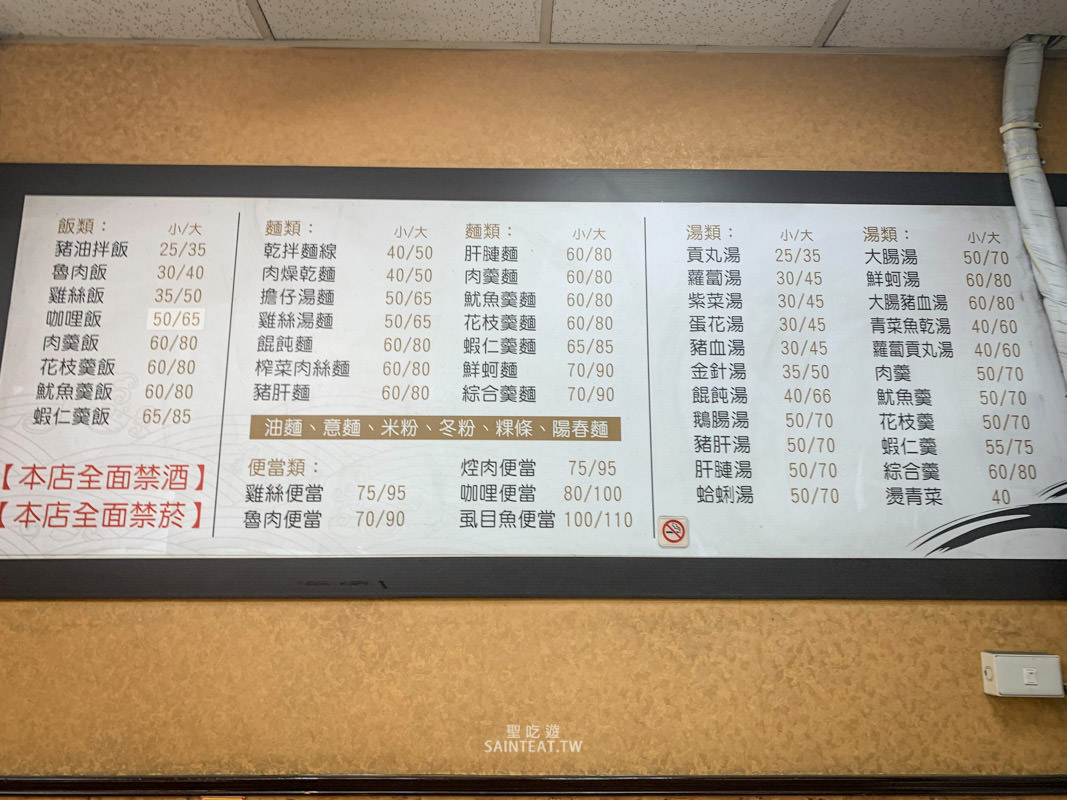 飯類： 小/大
豬油拌飯 25/35
魯肉飯 30/40
雞絲飯 35/50
咖哩飯 50/65
肉羹飯 60/80
花枝羹飯 60/80
魷魚羹飯 60/80
蝦仁羹飯 65/85
【本店全面禁酒】
【本店全面禁菸】
麵類： 小/大
乾拌麵線 40/50
肉燥乾麵 40/50
擔仔湯麵 50/65
雞絲湯麵 50/65
餛飩麵 60/80
榨菜肉絲麵 60/80
豬肝麵 60/80
麵類： 小/大
肝腱麵 60/80
肉羹麵 60/80
魷魚羹麵 60/80
花枝羹麵 60/80
蝦仁羹麵 65/85
鮮蚵麵 70/90
綜合羹麵 70/90
油麵、意麵、米粉、冬粉、粿條、陽春麵
便當類：
雞絲便當 75/95
魯肉便當 70/90
焢肉便當 75/95
咖哩便當 80/100
虱目魚便當 100/110
湯類： 小/大
貢丸湯 25/35
蘿蔔湯 30/45
紫菜湯 30/45
蛋花湯 30/45
豬血湯 30/45
金針湯 35/50
餛飩湯 40/66
鵝腸湯 50/70
豬肝湯 50/70
肝腱湯 50/70
蛤蜊湯 50/70
湯類： 小/大
大腸湯 50/70
鮮蚵湯 60/80
大腸豬血湯 60/80
青菜魚乾湯 40/60
蘿蔔貢丸湯 40/60
肉羹 50/70
魷魚羹 50/70
花枝羹 50/70
蝦仁羹 55/75
綜合羹 60/80
燙青菜 40
聖吃遊
SAINTEAT.TW